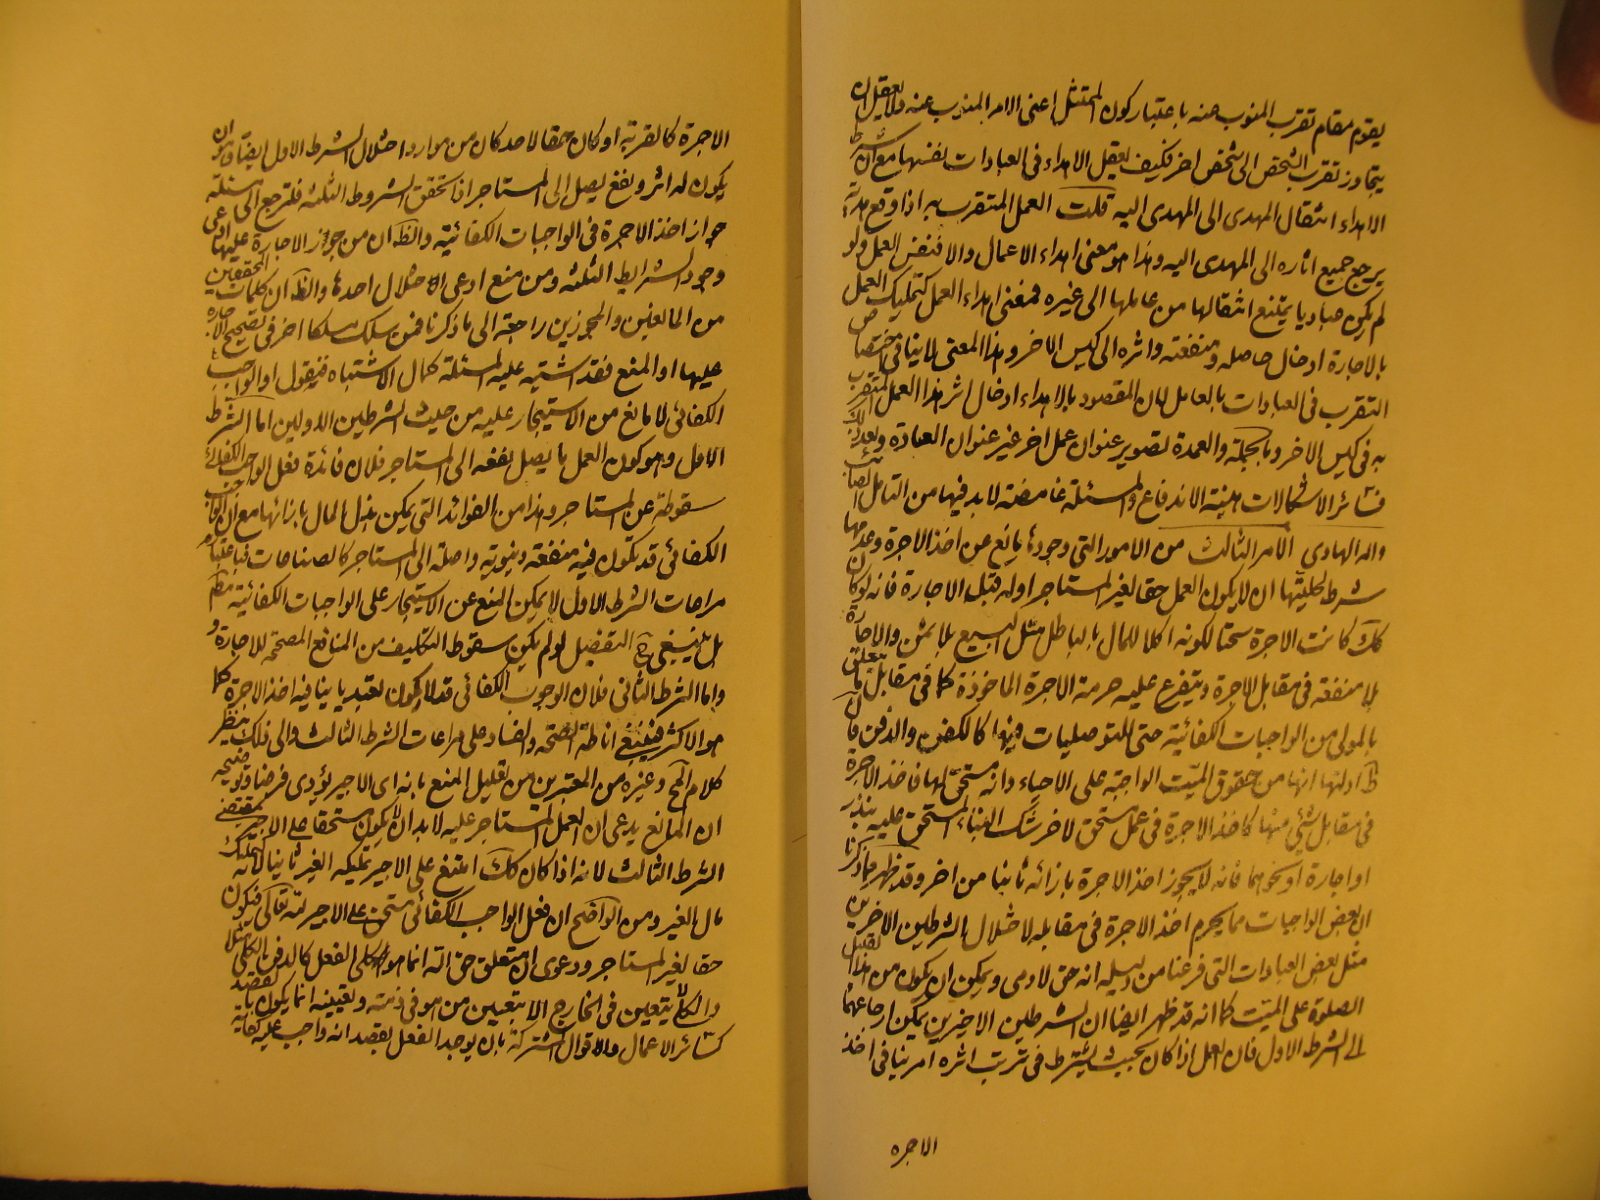 يقوم مقام تقرب المنوب عنه باعتبار كون الممتثل اعنى الامر المنوب عنه ولا يعقل ان
يتجاوز تقرب الشخص الى شخص اخر فكيف يعقل الاهداء فى العبادات نفسها مع ان شرط
الاهداء انتقال المهدى الى المهدى اليه قلت العمل المتقرب به اذا وقع هدية
يرجع جميع اثاره الى المهدى اليه وهذا هو معنى اهداء الاعمال والا فنفس العمل ولو
لم يكن عباديا يمتنع انتقالها من عاملها الى غيره فمعنى اهداء العمل كتمليك العمل
بالاجارة ادخال حاصله ومنفعته واثره الى كيس الاخر وهذا المعنى لا ينافى اختصاص
التقرب فى العبادات بالعامل لان المقصود بالاهداء ادخال اثر هذا العمل المتقرب
به فى كيس الاخر وبالجملة والعمدة تصوير عنوان عمل اخر غير عنوان العبادة وبعد ذلك
فسائر الاشكالات هينة الاندفاع والمسئلة غامضة لا بد فيها من التامل الصائب
والله الهادى الامر الثالث من الامور التى وجودها مانع عن اخذ الاجرة وعدمها
شرط لحليتها ان لا يكون العمل حقا لغير المستاجر اوله قبل الاجارة فانه لو كان
كك كانت الاجرة سحتا لكونه اكلا للمال بالباطل مثل البيع بلا ثمن والاجارة
بلا منفعة فى مقابل الاجرة ويتفرع عليه حرمة الاجرة الماخوذة كلا فى مقابل ما يتعلق
بالمولى من الواجبات الكفائية حتى التوصليات منها كالكفن والدفن فان
ظ ادلتها انها من حقوق الميت الواجبة على الاحياء وانه مستحق لها فاخذ الاجرة
فى مقابل شئى منها كاخذ الاجرة فى عمل مستحق لاخر المستحق عليه بنذر
او اجارة او نحوهما فانه لا يجوز اخذ الاجرة بازائه ثانيا من اخر وقد ظهر مما ذكرنا
ان بعض الواجبات مما يحرم اخذ الاجرة فى مقابله لاختلال الشرطين الاخرين
مثل بعض العبادات التى فرغنا من دليله انه حق لادمى ويمكن ان يكون من هذا القبيل
الصلوة على الميت كما انه قد ظهر ايضا ان الشرطين الاخيرين يمكن ارجاعهما
الى الشرط الاول فان العمل اذا كان بحيث يشترط فى ترتب اثره امر ينافى اخذ
الاجره
الاجرة كالقربة او كان حقا لاحد كان من موارد اختلال الشرط الاول ايضا وهو ان
يكون له اثر ونفع يصل الى المستاجر اذا تحقق الشروط الثلثة فلنرجع الى مسئلة
جواز اخذ الاجرة فى الواجبات الكفائية والظ ان من جوز الاجارة عليها ادعى
وجود الشرايط الثلثة ومن منع ادعى الاختلال احدها والظ ان كلمات المحققين
من المانعين والمجوزين راجعة الى ما ذكرنا فمن سلك مسلكا اخر فى تصحيح الاجارة
عليها او المنع فقد اشتبه عليه المسئلة كمال الاشتباه فيقول او الواجب
الكفائى لا مانع من الاستيجار عليه من حيث الشرطين الاولين اما الشرط
الاول وهو كون العمل ما يصل نفعه الى المستاجر فلان فائدة فعل الواجب الكفائى
سقوطه عن المستاجر وهذا من الفوائد التى يمكن بذل المال بازائها مع ان الواجب
الكفائى قد يكون فيه منفعة دنيوية واصلة الى المستاجر كالصناعات فباعتبار
مراعات الشرط الاول لا يمكن المنع عن الاستيجار على الواجبات الكفائية مطم
بل ينبغى ح التفصيل لو لم يكن سقوط التكليف من المنافع المصححة للاجارة و
واما الشرط الثانى فلان الوجوب الكفائى قد لا يكون تعبديا ينافيه اخذ الاجرة كما
هو الاكثر فينبغى اناطة الصحة والفساد على مراعات الشرط الثالث والى ذلك ينظر
كلام المح وغيره من المعتبرين من تعليل المنع بانه اى الاجير يؤدى فرضا وتوضيحه
ان المانع يدعى ان العمل المستاجر عليه لا بد ان لا يكون مستحقا على الاجير بمقتضى
الشرط الثالث لانه اذا كان كك امتنع على الاجير تمليكه الغير ثانيا لانه تمليك
مال الغير ومن الواضح ان فعل الواجب الكفائى مستحق على الاجير لله تعالى فيكون
حقا لغير المستاجر ودعوى ان متعلق حق الله انما هو كلى الفعل كالدفن الكلى مثلا
والكلى لا يتعين فى الخارج الا بتعيين من هو فى ذمته وتعيينه انما يكون بالقصد
كسائر الاعمال والاقوال المشتركة بان يوجد الفعل بقصد انه واجب عليه كفائة